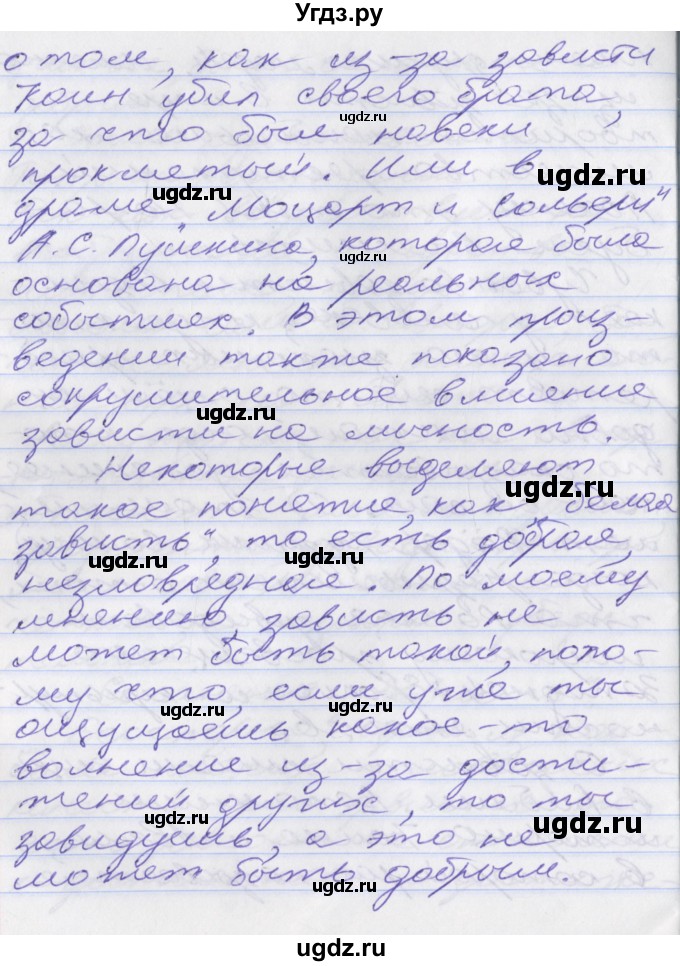 Угдз.ру
о том, как из-за зависти
Каин убил своего брата,
за что был навеки
проклятый. Или в
ugdz.ru
ugdz.ru
драме "Моцарт и Сальери"
ugdz.ru
А.С. Пушкина, которая была
основана на реальных
событиях. В этом произ-
ugdz.ru
ugdz.ru
ведении также показано
сокрушительное влияние
ugdz.ru
зависти на личность.
Некоторые выделяют
ugdz.ru
такое понятие, как „белая
зависть", то есть добрая,
ugdz.ru
ugdz.ru
незловредная. По моему
мнению зависть не
может быть такой, пото-
му что, если уже ты
ugdz.ru
ugdz.ru
ощущаешь какое-то
волнение из-за дости-
жений других, то ты
ugdz.ru
завидуешь, а это не
ugdz.ru
может быть добрым.
ugdz.ru
ugdz.ru